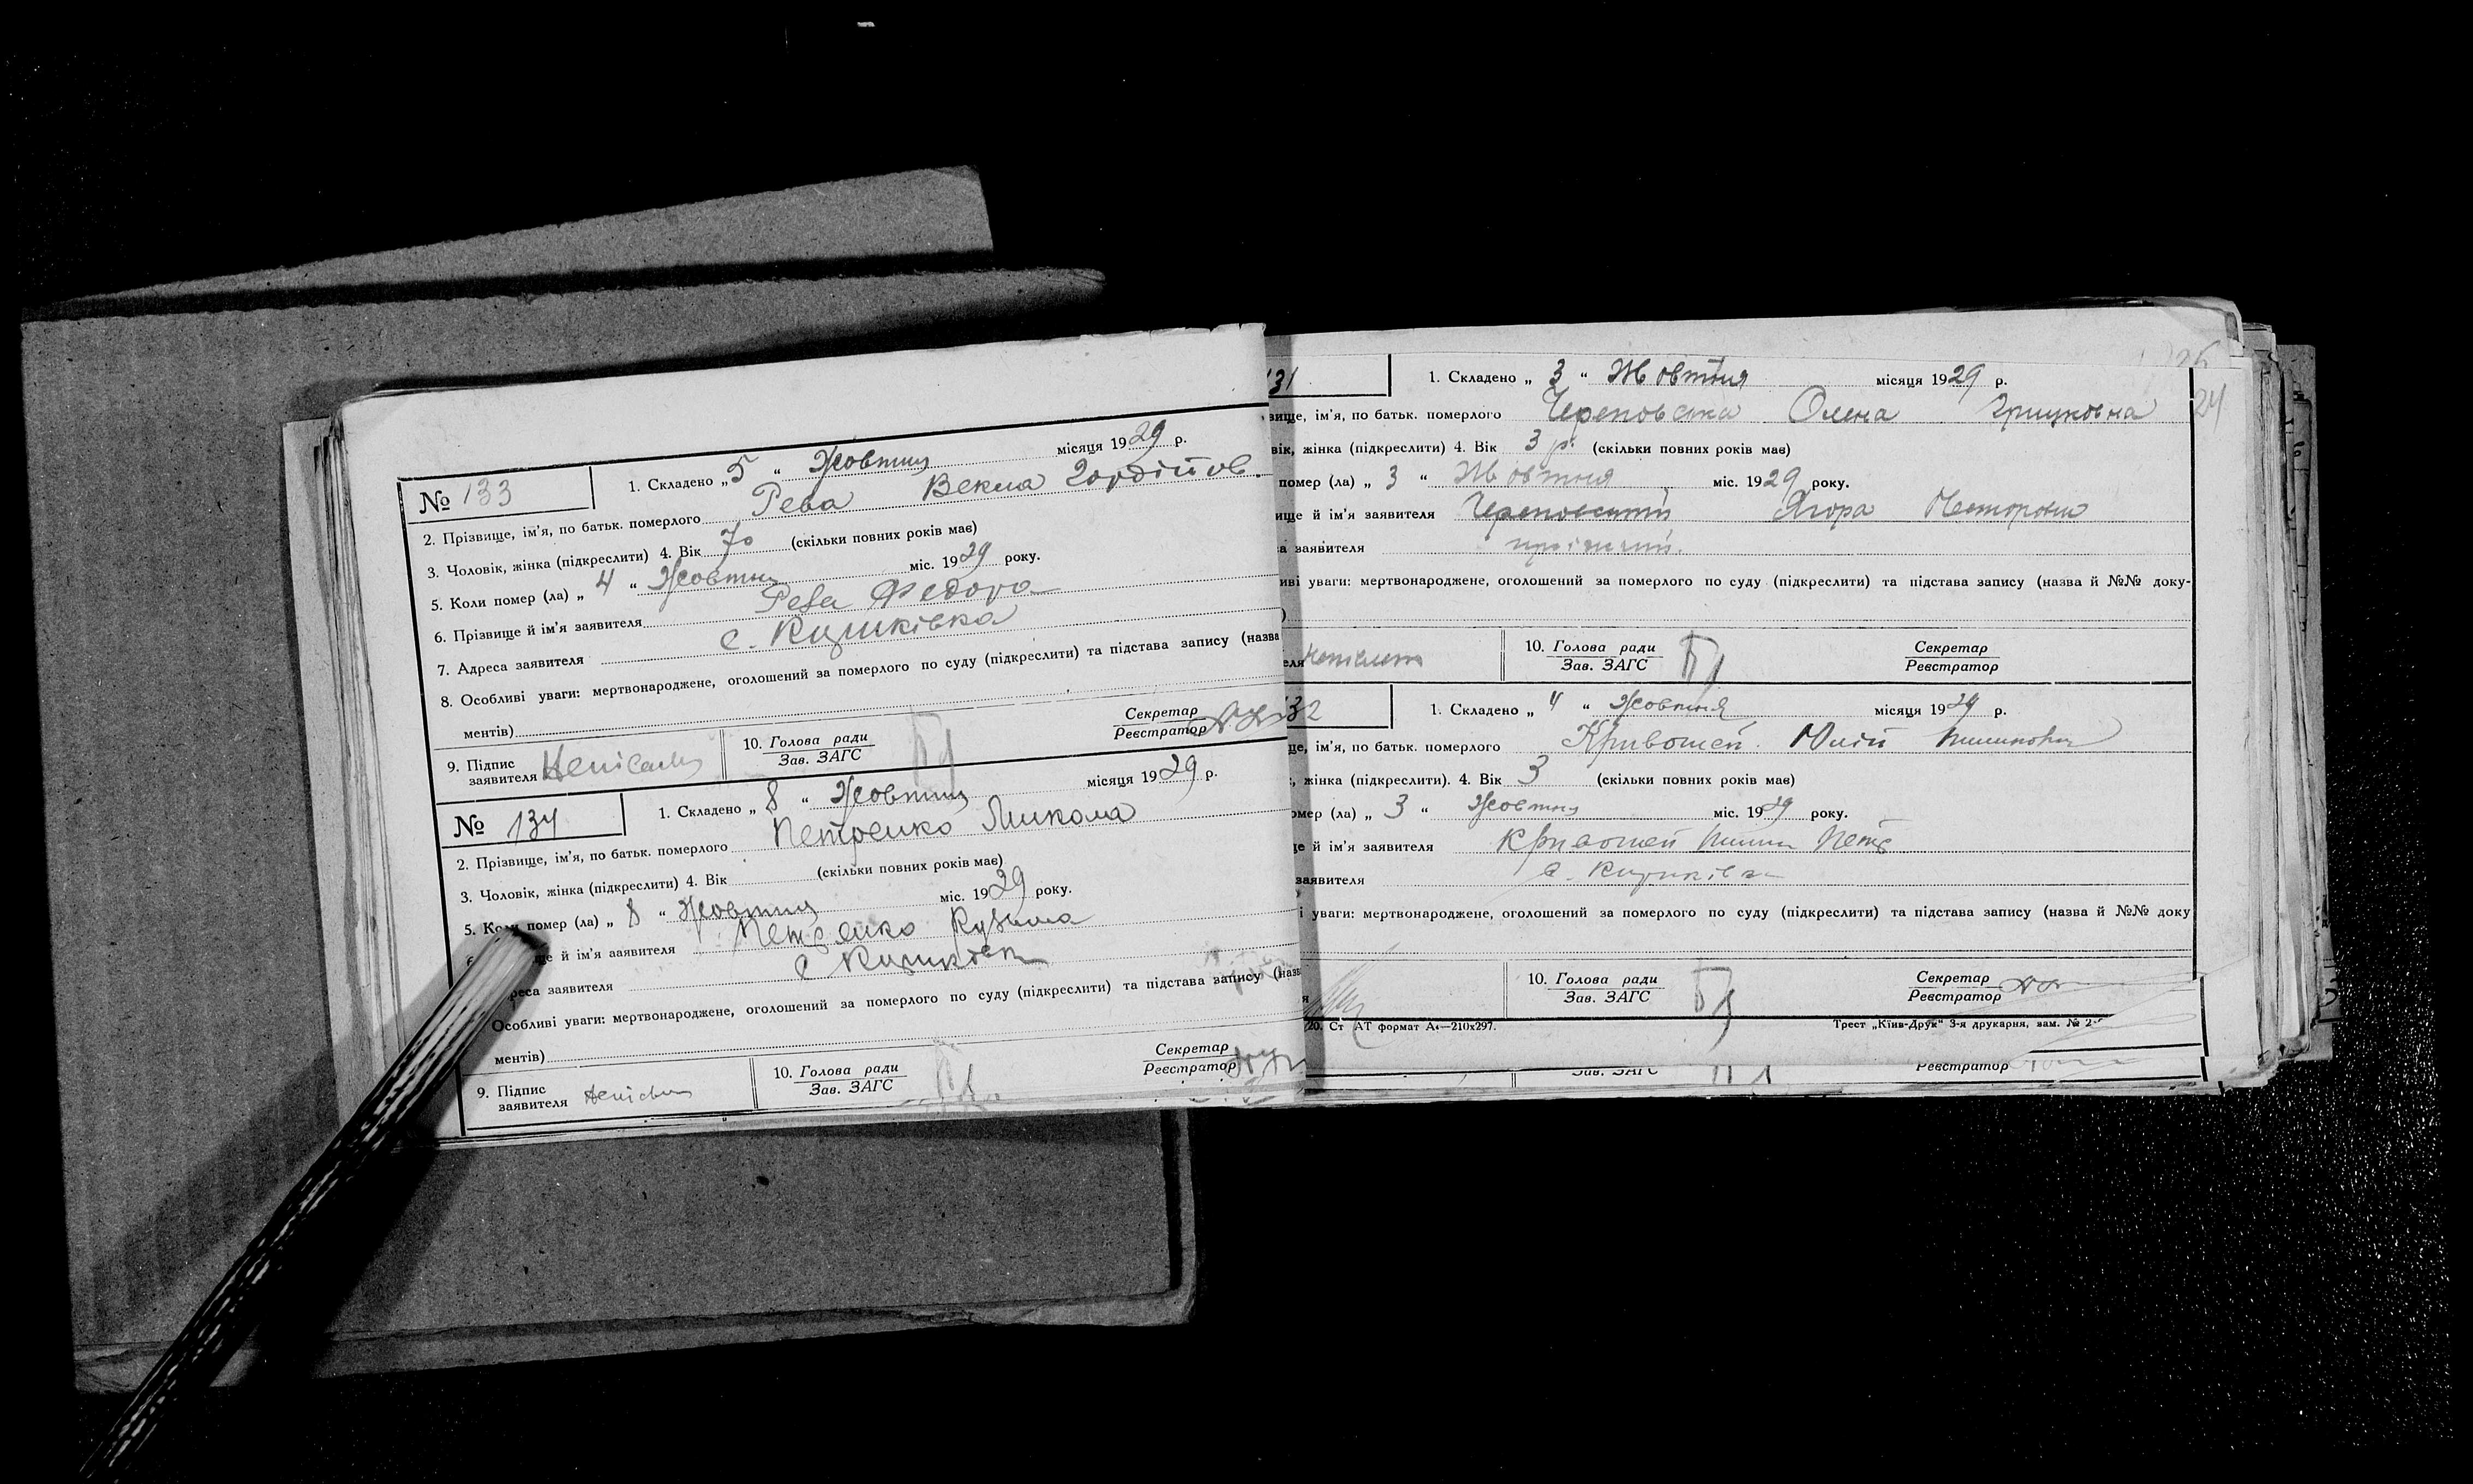 № 133
1. Складено „ 5 “ Жовтня місяця 1929 р.
2. Прізвище, ім'я, по батьк. померлого Рева Векла Гордіїов.
3. Чоловік, жінка (підкреслити) 4. Вік 70 (скільки повних років має)
5. Коли помер (ла) „ 4 “ Жовтня міс. 1929 року.
6. Прізвище й ім'я заявителя Рева Федора
7. Адреса заявителя с.
8. Особливі уваги: мертвонароджене, оголошений за померлого по суду (підкреслити) та підстава запису (назва
ментів)
9. Підпис заявителя
10. Голова ради
Зав. ЗАГС
Секретар
Реєстратор
№ 134
1. Складено „ 8 “ Жовтня місяця 1929 р.
2. Прізвище, ім'я, по батьк. померлого Петренко Микола
3. Чоловік, жінка (підкреслити) 4. Вік (скільки повних років має)
5. помер (ла) „ 8 “ Жовтня міс. 1929 року.
ще й ім'я заявителя Петренко Кузьма
реса заявителя с
Особливі уваги: мертвонароджене, оголошений за померлого по суду (підкреслити) та підстава запису (назв
ментів)
9. Підпис заявителя
10. Голова ради
Зав. ЗАГС
Секретар
Реєстратор
24
31
1. Складено „ 3 “ Жовтня місяця 1929 р.
вище, ім'я, по батьк. померлого Череповська Олена Грицковна
вік, жінка (підкреслити) 4. Вік 3 р. (скільки повних років має)
помер (ла) „ 3 “ Жовтня міс. 1929 року.
ище й ім'я заявителя Череповский Ягора Несторович
а заявителя
иві уваги: мертвонароджене, оголошений за померлого по суду (підкреслити) та підстава запису (назва й №№ доку-
)
еля
10. Голова ради
Зав. ЗАГС
Секретар
Реєстратор
32
1. Складено „ 4 “ Жовтня місяця 1929 р.
ще, ім'я, по батьк. померлого Кривошей
, жінка (підкреслити). 4. Вік 3 (скільки повних років має)
омер (ла) „ 3 “ Жовтня міс. 1929 року.
ще й ім'я заявителя Кривошей
заявителя с.
і уваги: мертвонароджене, оголошений за померлого по суду (підкреслити) та підстава запису (назва й №№ доку
я
10. Голова ради
Зав. ЗАГС
Секретар
Реєстратор
20. Ст АТ формат А4—210х297.
Трест „Київ-Друк“ 3-я друкарня, зам. № 2
Зав. ЗАГС
Реєстратор